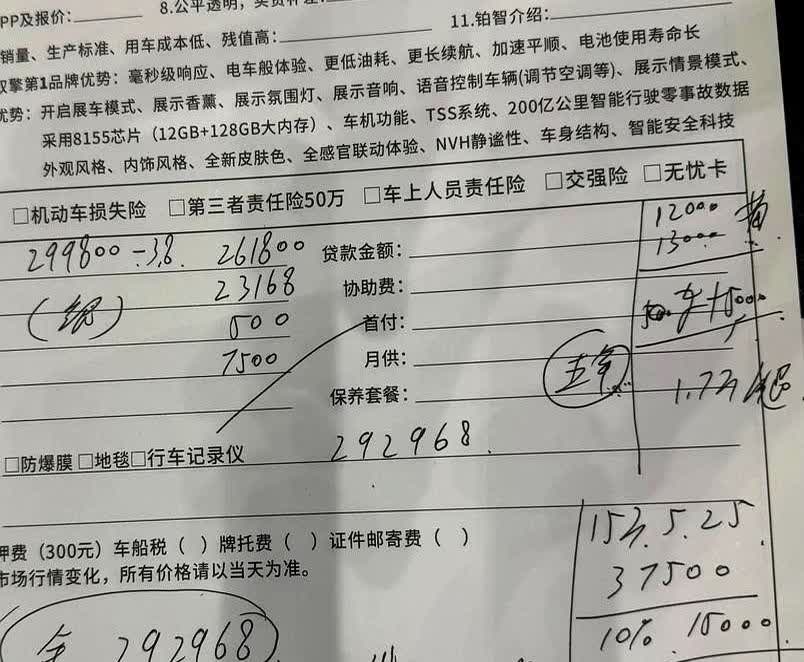 PP及报价: 8.公平透明，
11.铂智介绍:
销量、生产标准、用车成本低、残值高:
双擎第1品牌优势: 毫秒级响应、电车般体验、更低油耗、更长续航、加速平顺、电池使用寿命长
优势: 开启展车模式、展示香薰、展示氛围灯、展示音响、语音控制车辆(调节空调等)、展示情景模式、
采用8155芯片（12GB+128GB大内存）、车机功能、TSS系统、200亿公里智能行驶零事故数据
外观风格、内饰风格、全新皮肤色、全感官联动体验、NVH静谧性、车身结构、智能安全科技
□机动车损失险 □第三者责任险50万 □车上人员责任险 □交强险 □无忧卡
12000
13000
299800-3.8. 261800 贷款金额:
23168 协助费:
500 首付:
7500 月供:
五年
1.7万
保养套餐:
□防爆膜 □地毯□行车记录仪 292968.
押费（300元）车船税（ ）牌托费（ ）证件邮寄费（ ）
市场行情变化，所有价格请以当天为准。
15万.5.25.
37500
10% 15000.
292968